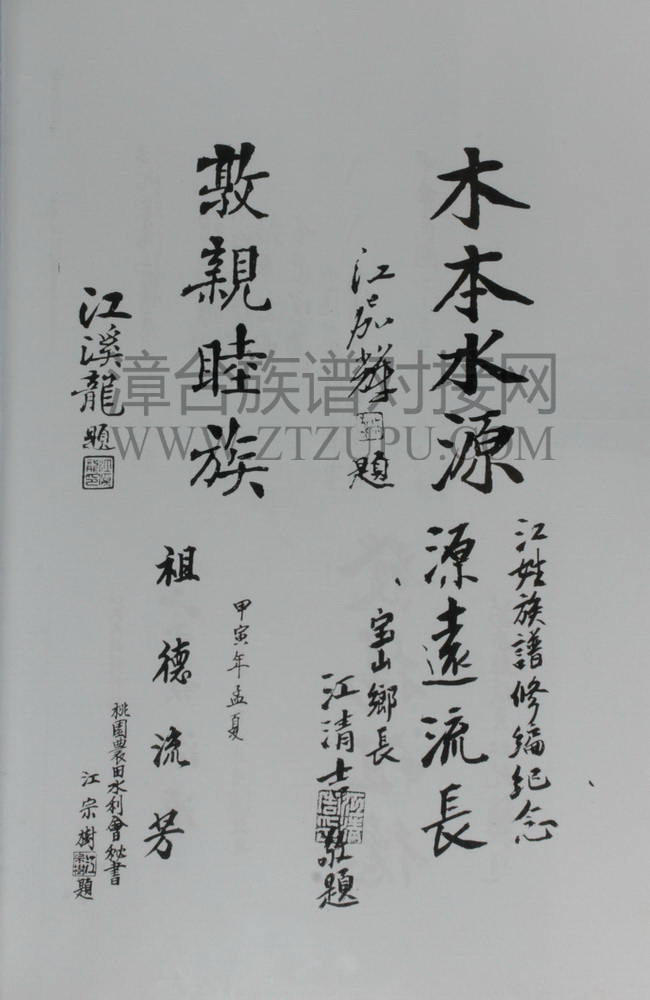 木本水源
江嘉輝
題
敦親睦族
江溪龍題
江姓族譜修編紀念
源遠流長
宝山鄉長
江清吉敬題
甲寅年孟夏
祖德流芳
桃園農田水利會秘書
江宗樹題
漳台族谱对接网
WWW.ZTZUPU.COM